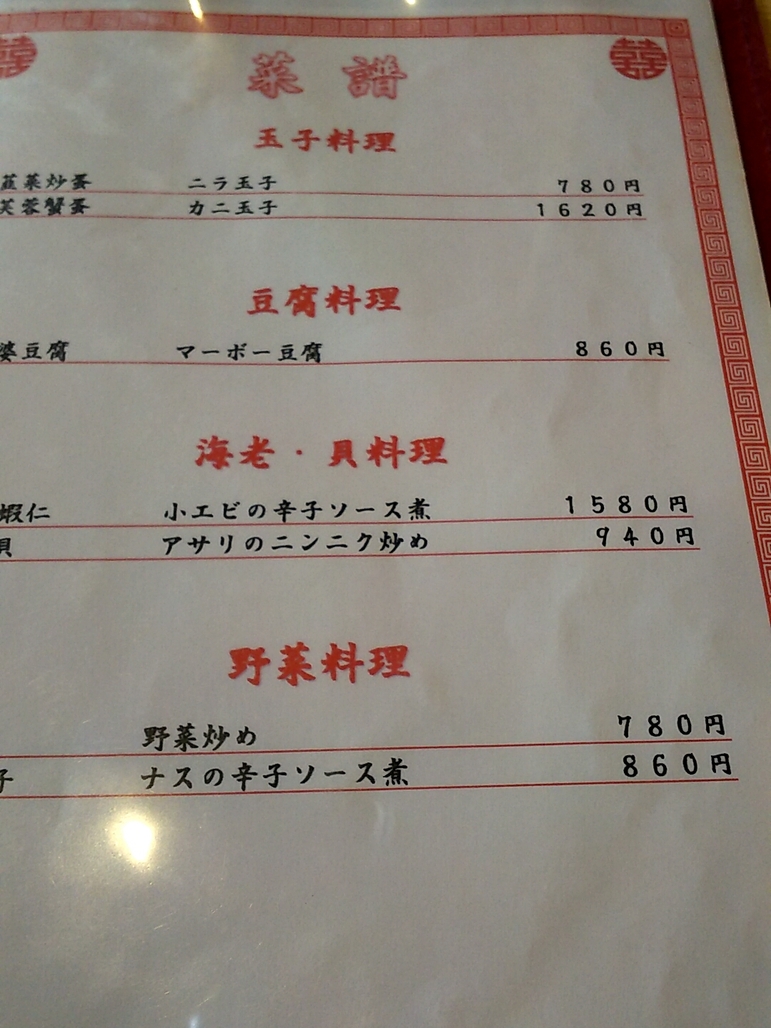 囍 囍
菜 譜
玉子料理
韮菜炒蛋 ニラ玉子 780円
芙蓉蟹蛋 カニ玉子 1620円
豆腐料理
婆豆腐 マーボー豆腐 860円
海老・貝料理
蝦仁 小エビの辛子ソース煮 1580円
貝 アサリのニンニク炒め 940円
野菜料理
野菜炒め 780円
子 ナスの辛子ソース煮 860円